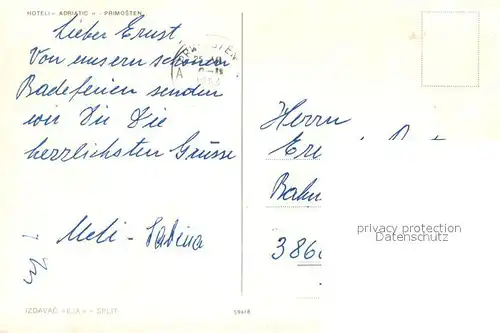 HOTELI « ADRIATIC » - PRIMOŠTEN
Lieber Ernst
Von unsern schönen
Badeferien senden
wir Dir Die
herrlichsten Grüsse
Meli - Sabina
Herrn
Er
Bahn
386
privacy protection
Datenschutz
IZDAVAČ »EJA« - SPLIT